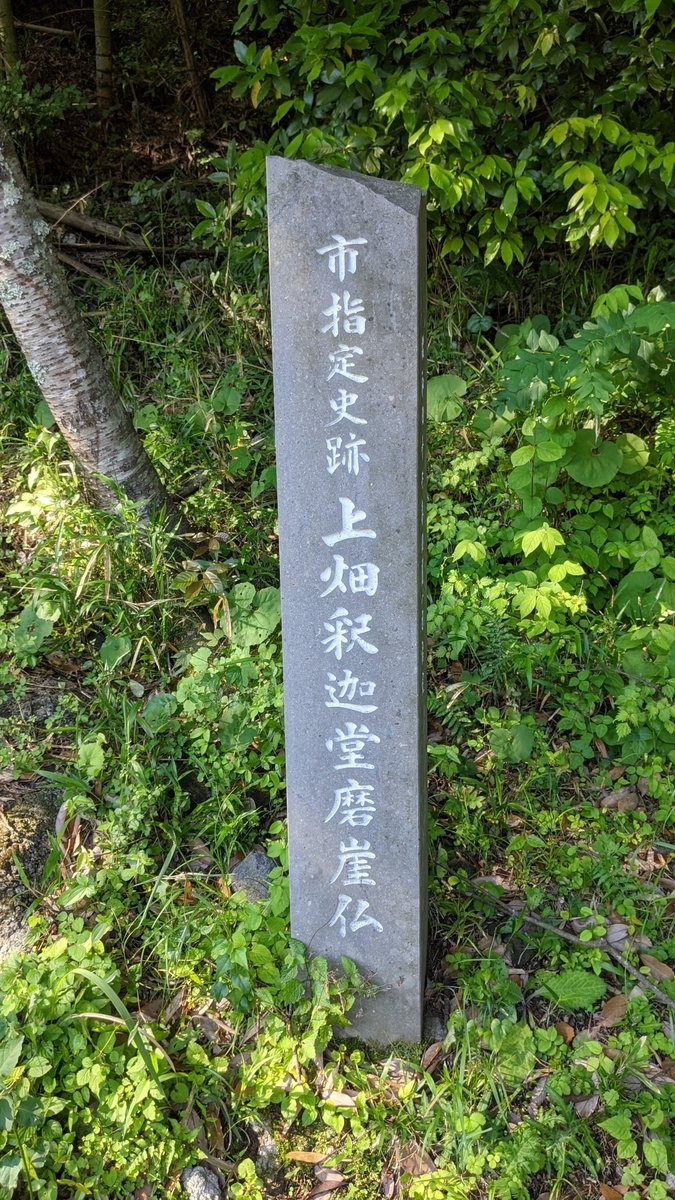 市指定史跡 上畑釈迦堂磨崖仏